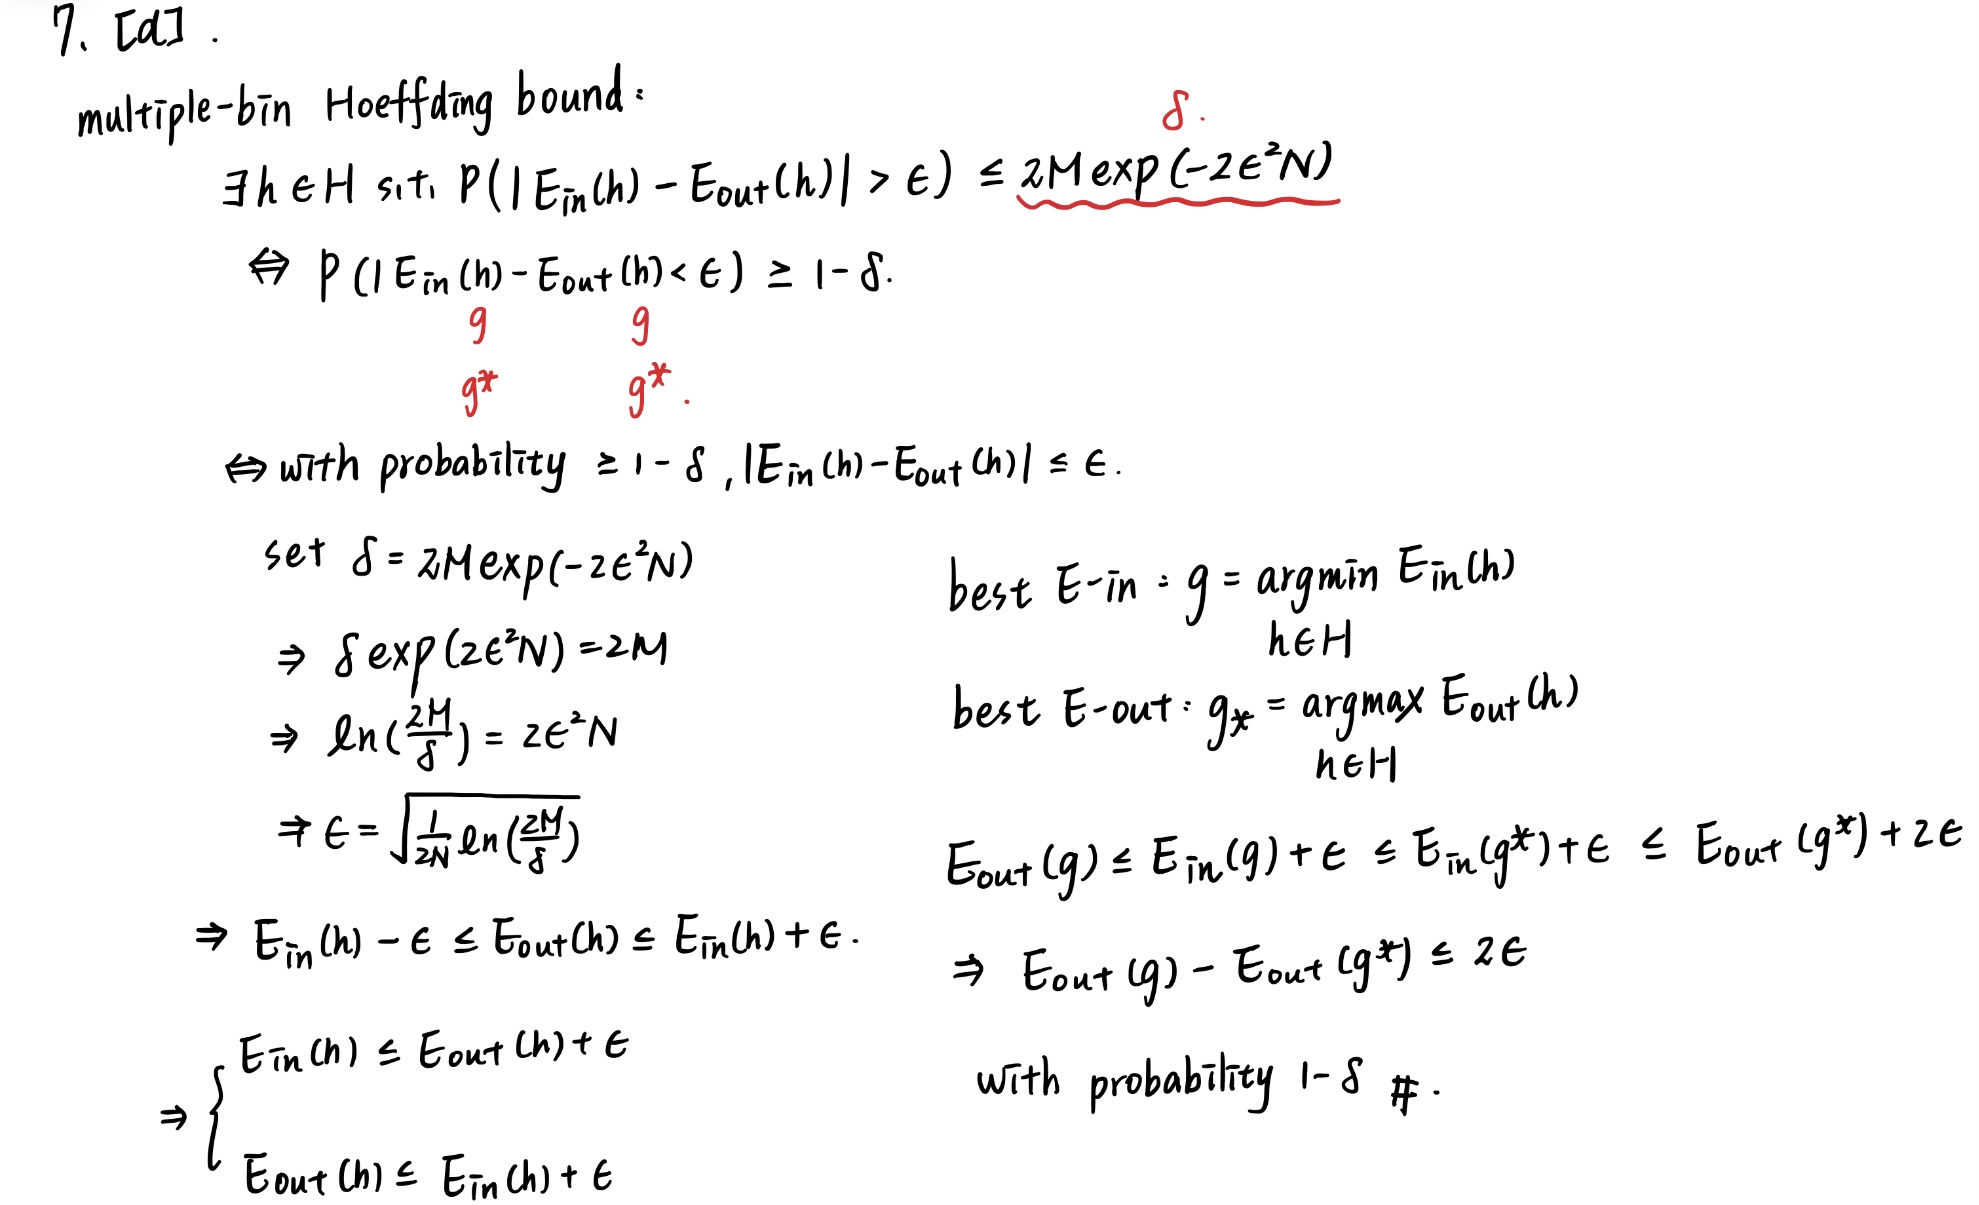 7. [d].
multiple-bin Hoeffding bound:
δ.
∃h∈H s.t. P(|Ein(h) - Eout(h)| > ϵ) ≤ 2M exp(-2ϵ²N)
⇔ P(|Ein(h) - Eout(h) < ϵ) ≥ 1-δ.
g g
g* g*.
⇔ with probability ≥ 1-δ, |Ein(h) - Eout(h)| ≤ ϵ.
set δ = 2M exp(-2ϵ²N)
⇒ δ exp(2ϵ²N) = 2M
⇒ ln(2M/δ) = 2ϵ²N
⇒ ϵ = √(1/2N ln(2M/δ))
⇒ Ein(h) - ϵ ≤ Eout(h) ≤ Ein(h) + ϵ.
⇒ { Ein(h) ≤ Eout(h) + ϵ
Eout(h) ≤ Ein(h) + ϵ
best E-in : g = argmin Ein(h)
h∈H
best E-out : g* = argmax Eout(h)
h∈H
Eout(g) ≤ Ein(g) + ϵ ≤ Ein(g*) + ϵ ≤ Eout(g*) + 2ϵ
⇒ Eout(g) - Eout(g*) ≤ 2ϵ
with probability 1-δ #.